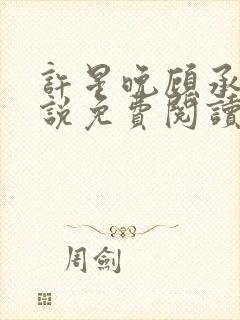 許星晚顧承
說免費閱讀
周劍